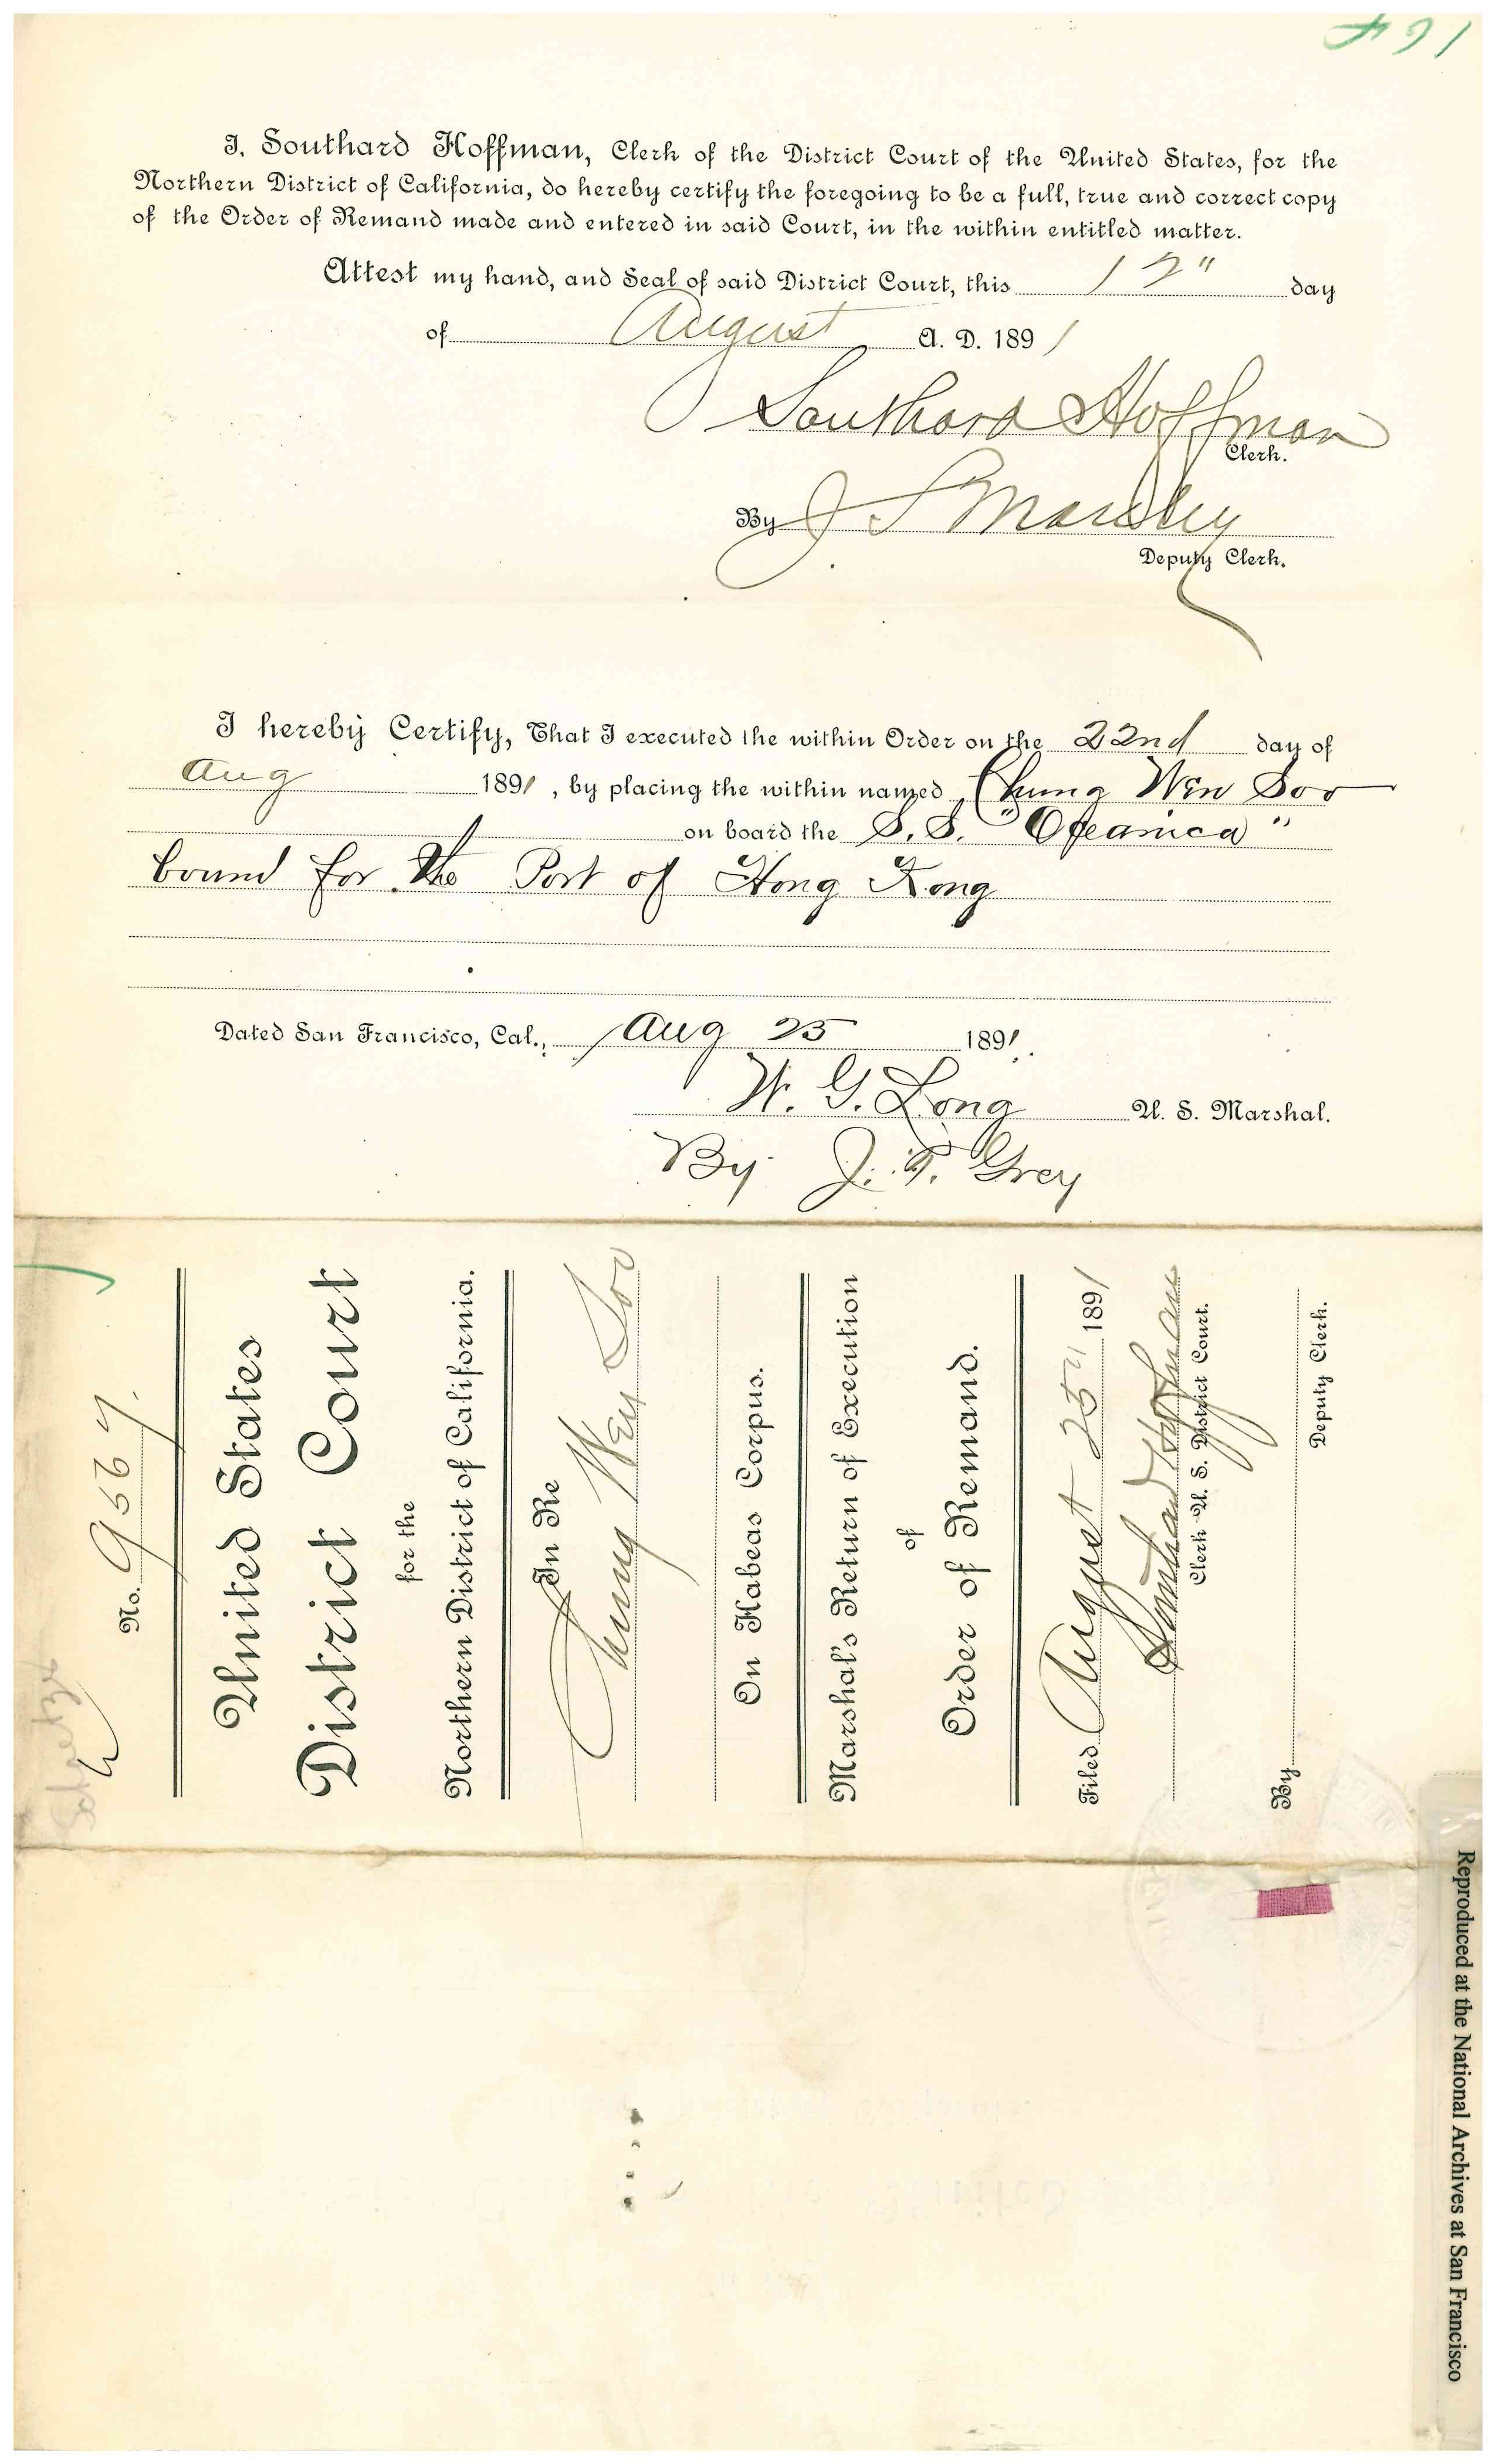 164
I, Southard Hoffman, Clerk of the District Court of the United States, for the
Northern District of California, do hereby certify the foregoing to be a full, true and correct copy
of the Order of Remand made and entered in said Court, in the within entitled matter.
Attest my hand, and Seal of said District Court, this 12" day
of August A. D. 1891
Southard Hoffman
Clerk.
By J S Manley
Deputy Clerk.
I hereby Certify, That I executed the within Order on the 22nd day of
Aug 1891, by placing the within named Chung Wen Soo
on board the S. S. "Oceanica"
bound for the Port of Hong Kong
Dated San Francisco, Cal., Aug 25 1891.
W. G. Long U. S. Marshal.
By J. T. Grey
No. 9567.
United States
District Court
for the
Northern District of California.
In Re
Chung Wen Soo
On Habeas Corpus.
Marshal's Return of Execution
of
Order of Remand.
Filed August 25th 1891
Southard Hoffman
Clerk U. S. District Court.
By
Deputy Clerk.
Reproduced at the National Archives at San Francisco